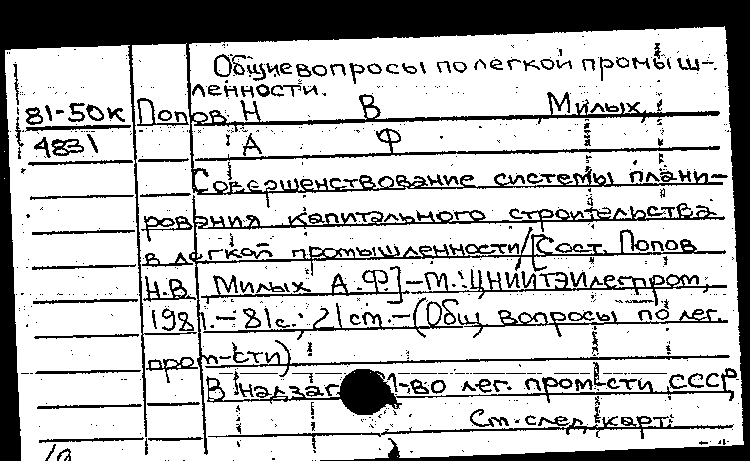 Общие вопросы по легкой промыш-
ленности.
81-50к Попов Н В Милых,
4831 А Ф
Совершенствование системы плани-
рования капитального строительства
в легкой промышленности/[Сост. Попов
Н.В. Милых А.Ф]-М.:ЦНИИТЭИлегпром,
1981.-81с.; 21 ст.-(Общ вопросы по лег.
пром-сти)
В надзаг. М-во лег. пром-сти СССР,
См. след. карт.